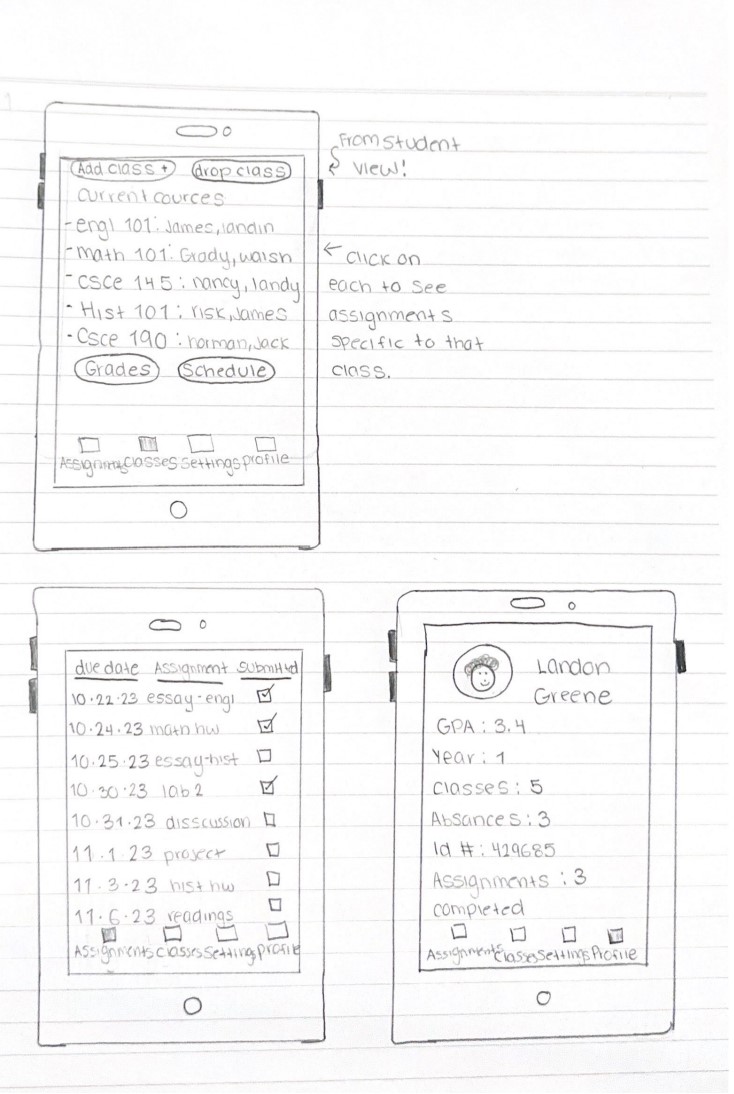 Add class + drop class
current cources
- engl 101: James, landin
- math 101: Grady, walsh
- csce 145: nancy, landy
- Hist 101: risk, James
- Csce 190: norman, Jack
Grades Schedule
Classes Settings profile
From student
view!
← click on
each to see
assignments
specific to that
class.
due date Assignment Submitted
10.22.23 essay-engl
10.24.23 math hw
10.25.23 essay-hist
10.30.23 lab 2
10.31.23 disscussion
11.1.23 project
11.3.23 hist hw
11.6.23 readings
Assignments Classes Setting profile
Landon
Greene
GPA: 3.4
Year: 1
Classes: 5
Absances: 3
Id #: 429685
Assignments: 3
completed
Assignments Classes Settings Profile